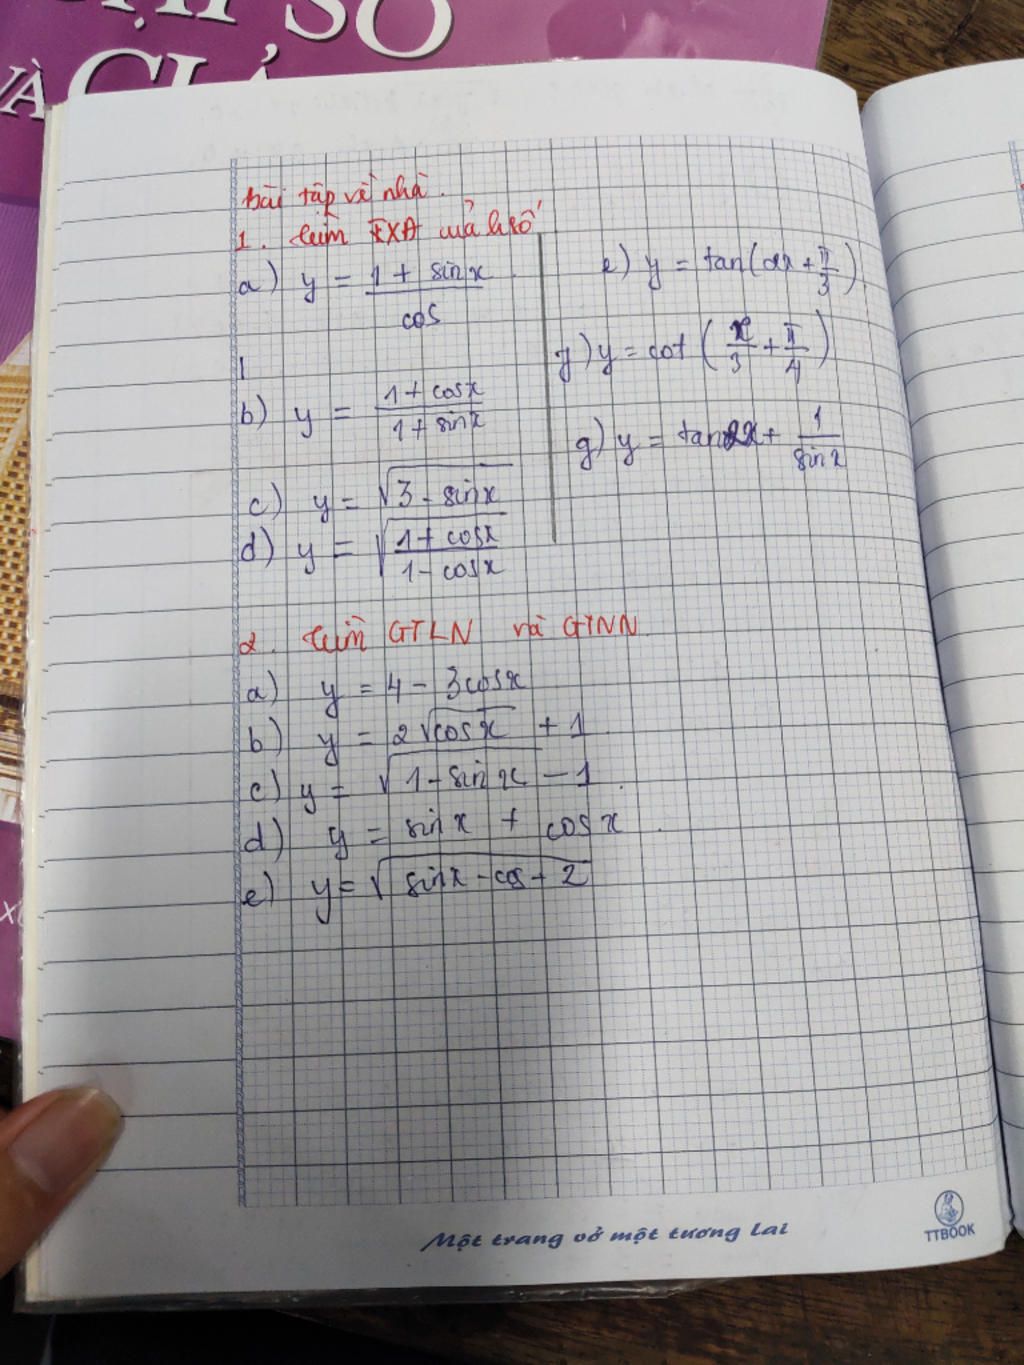 SỐ
VÀ GIẢ
bài tập về nhà.
1. tìm TXĐ của h số
a) y = \frac{1 + sin x}{cos}
b) y = \frac{1 + cos x}{1 + sin x}
c) y = \sqrt{3 - sin x}
d) y = \sqrt{\frac{1 + cos x}{1 - cos x}}
e) y = tan(2x + \frac{π}{3})
g) y = cot(\frac{x}{3} + \frac{π}{4})
g) y = tan 2x + \frac{1}{sin x}
2. tìm GTLN và GTNN
a) y = 4 - 3cos x
b) y = 2\sqrt{cos x} + 1
c) y = \sqrt{1 - sin x} - 1
d) y = sin x + cos x
e) y = \sqrt{sin x - cos + 2}
Một trang vở một tương lai
TTBOOK